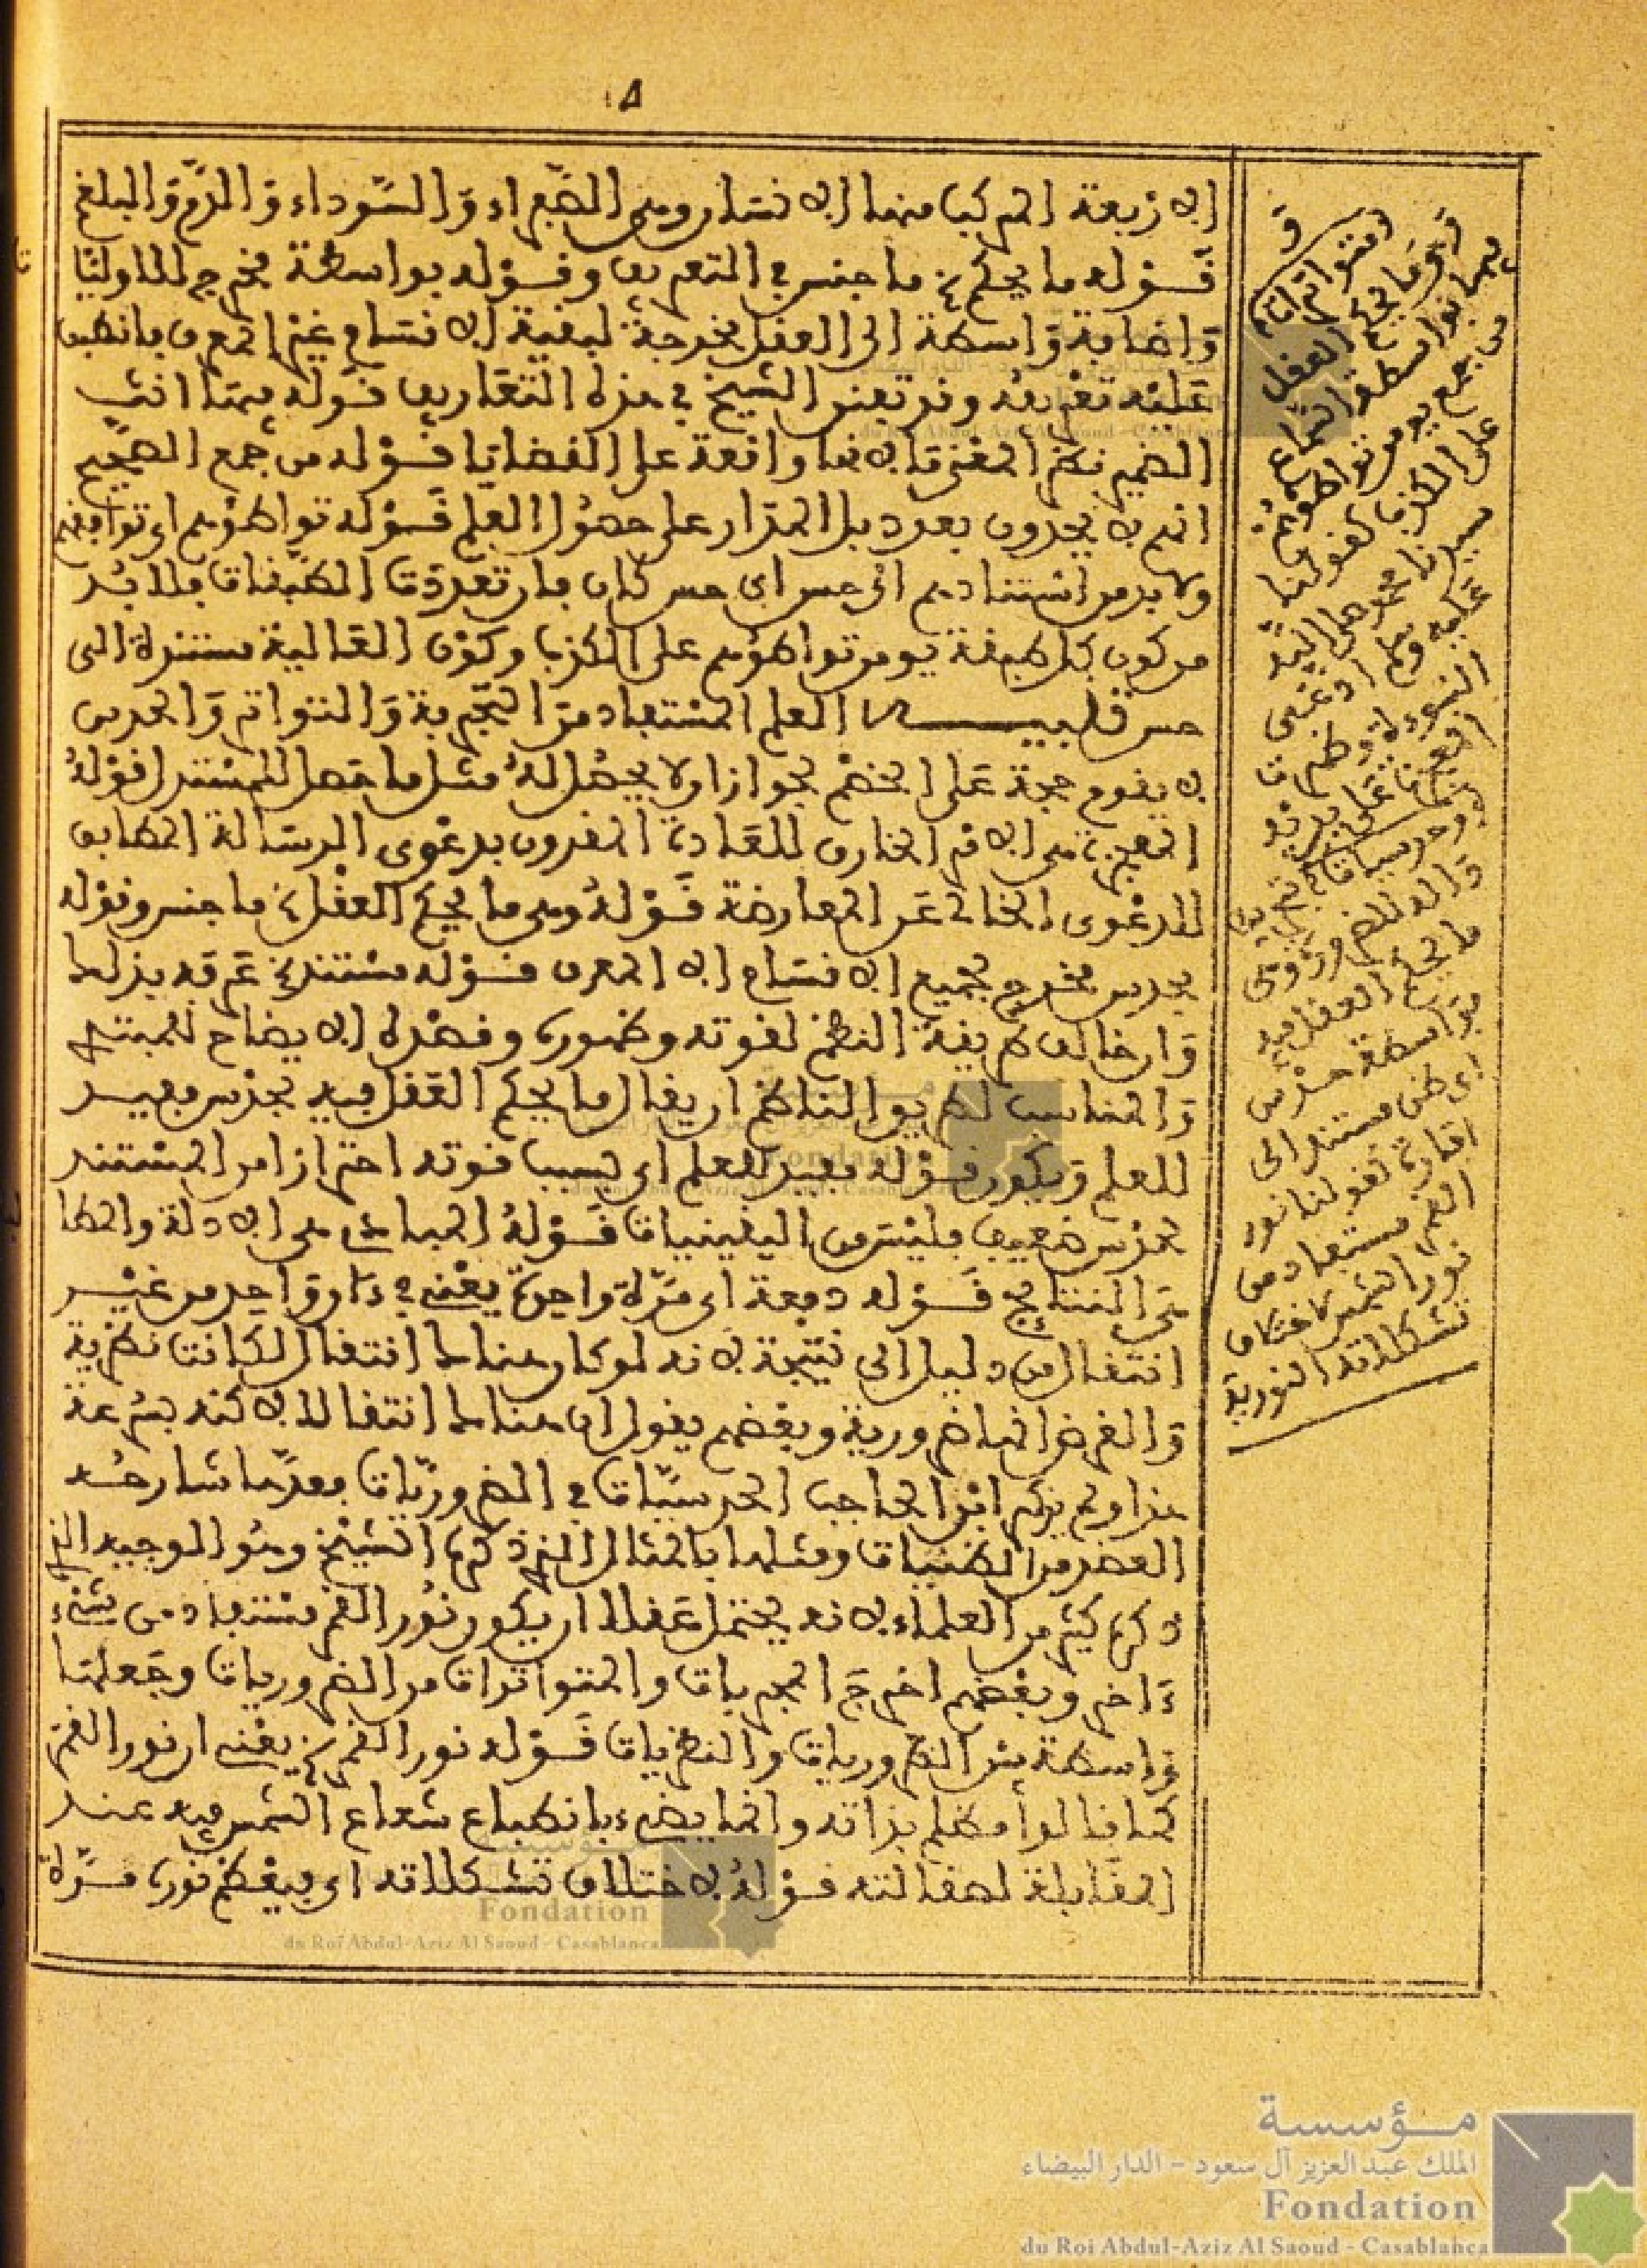 ٨
الاربعة المركب منها الانسان وهى الصفراء والسوداء والدم والبلغم
قوله ما يحكم الخ ما جنس في التعريف وقوله بواسطة مخرج للاوليات
واضافة واسطة الى العقل مخرجة لبقية الاقسام غير المعرف بانطبق
عليه تعريفه وقد تفنن الشيخ في هذه التعاريف قوله فيها انث
الضمير نظرا لمعنى ما لانها واقعة على القضايا قوله من جمع الصحيح
انهم لا يحدون بعدد بل المدار على حصول العلم قوله تواطؤهم اى توافقهم
ولا بد من استنادهم الى حس اى حس كان فان تعددت الطبقات فلا بد
من كون كل طبقة يومن تواطؤهم على الكذب وكون العالية مستندة الى
حس تنبيه العلم المستفاد من التجربة والتواتر والحدس
لا يقوم حجة على الخصم لجواز ان لا يحصل له مثل ما حصل للمستدل قوله
المعجزة هى الامر الخارق للعادة المقرون بدعوى الرسالة المطابق
للدعوى الخالى عن المعارضة قوله وهى ما يحكم العقل الخ ما جنس وقوله
بحدس مخرج لجميع الاقسام الا المعرف قوله مستند الخ عرفه بذلك
وان خالف طريقة النظم لقوته وظهوره وقصده الايضاح للمبتدى
والمناسب لطريق الناظم ان يقال ما يحكم العقل فيه بحدس مفيد
للعلم ويكون قوله مفيد للعلم اى بسبب قوته احترازا من المستند
لحدس ضعيف فليس من اليقينيات قوله المبادى هى الادلة والمطالب
هى النتائج قوله دفعة اى مرة واحدة يعنى في ءان واحد من غير
انتقال من دليل الى نتيجة لانه لو كان هناك انتقال لكانت نظرية
والغرض انها ضرورية وبعضهم يقول ان هناك انتقالا لاكنه بسرعة
هذا ولم يذكر ابن الحاجب الحدسيات في الضروريات وعدها شارحه
العضد من الظنيات ومثلها بالمثال الذى ذكره الشيخ وهو الوجيه الذى
ذكره كثير من العلماء لانه يحتمل عقلا ان يكون نور القمر مستفاد من شىء
ءاخر وبعضهم اخرج المجربات والمتواترات من الضروريات وجعلها
واسطة بين الضروريات والنظريات قوله نور القمر الخ يعنى ان نور القمر
كما قالوا مظلم بذاته وانما يضىء بانطباع شعاع الشمس فيه عند
المقابلة لصقالته قوله لاختلاف تشكلاته اى فيعظم نوره مرة
و
متواترات
وهو ما يحكم العقل
فيها بواسطة السماع
من جمع يومن تواطؤهم
على الكذب كقولنا
سيدنا محمد صلى الله
عليه وسلم ادعى
النبوءة وظهرت
المعجزات على يديه
وحدسيات
ما يحكم العقل فيه
بواسطة حدس
اى ظن مستند الى
امارة كقولنا نور
القمر مستفاد من
نور الشمس لاختلاف
تشكلاته النورية
مؤسسة
الملك عبد العزيز آل سعود - الدار البيضاء
Fondation
du Roi Abdul-Aziz Al Saoud - Casablanca